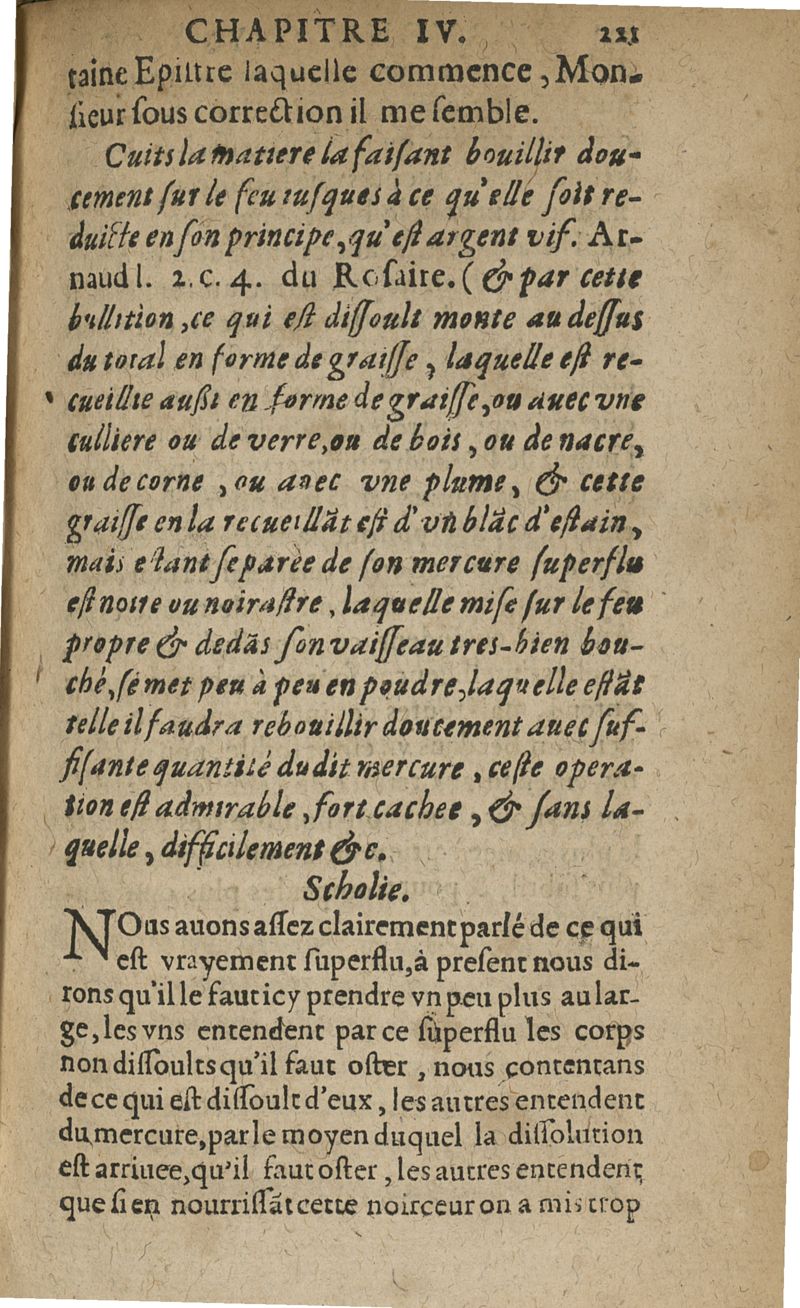 CHAPITRE IV. 221
taine Epiſtre laquelle commence, Mon-
ſieur ſous correction il me ſemble.
Cuits la matiere la faiſant bouillir dou-
cement ſur le feu iuſques à ce qu'elle ſoit re-
duicte en ſon principe, qu'eſt argent vif. Ar-
naud l. 2. c. 4. du Roſaire. (& par cette
bullition, ce qui eſt diſſoult monte au deſſus
du total en forme de graiſſe, laquelle eſt re-
cueillie außi en forme de graiſſe, ou auec vne
culliere ou de verre, ou de bois, ou de nacre,
ou de corne, ou auec vne plume, & cette
graiſſe en la recueillāt eſt d'vn blāc d'eſtain,
mais eſtant ſeparèe de ſon mercure ſuperflu
eſt noire ou noiraſtre, laquelle miſe ſur le feu
propre & dedās ſon vaiſſeau tres-bien bou-
ché, ſé met peu à peu en poudre, laquelle eſtāt
telle il faudra rebouillir doucement auec ſuf-
fiſante quantité dudit mercure, ceſte opera-
tion eſt admirable, fort cachee, & ſans la-
quelle, difficilement &c.
Scholie.
NOus auons aſſez clairement parlé de ce qui
eſt vrayement ſuperflu, à preſent nous di-
rons qu'il le faut icy prendre vn peu plus au lar-
ge, les vns entendent par ce ſuperflu les corps
non diſſoults qu'il faut oſter, nous contentans
de ce qui eſt diſſoult d'eux, les autres entendent
du mercure, par le moyen duquel la diſſolution
eſt arriuee, qu'il faut oſter, les autres entendent
que ſi en nourriſſāt cette noirceur on a mis trop